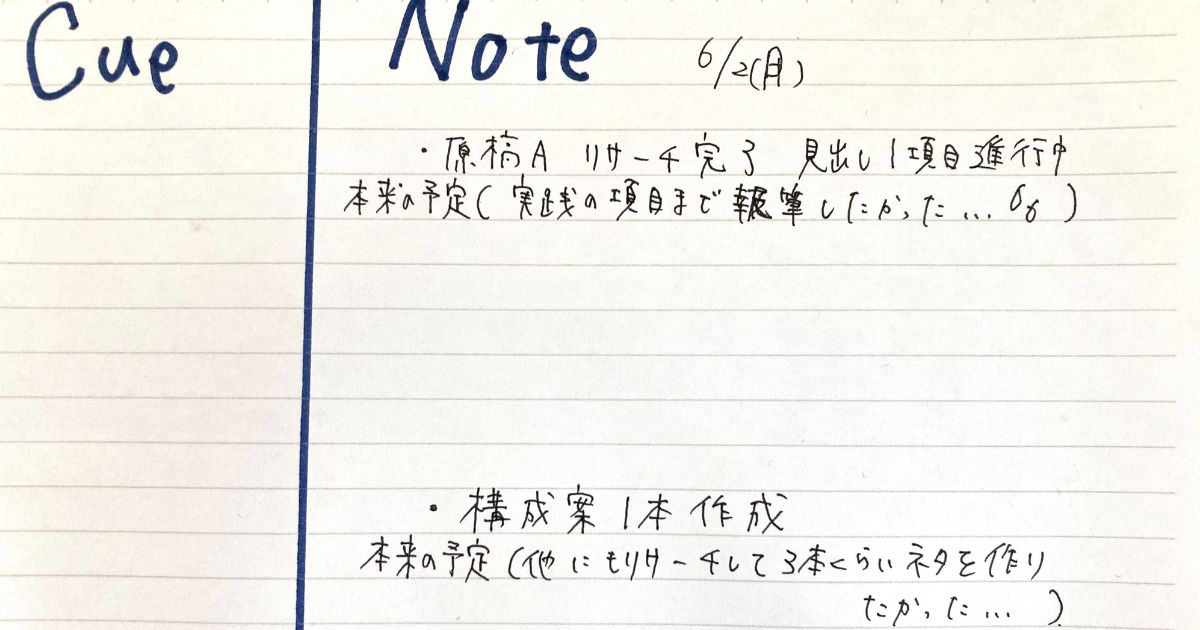 Cue
Note
6/2(月)
・原稿A リサーチ完了 見出し1項目進行中
本来の予定(実践の項目まで執筆したかった… )
・構成案1本作成
本来の予定(他にもリサーチして3本くらいネタを作り
たかった… )